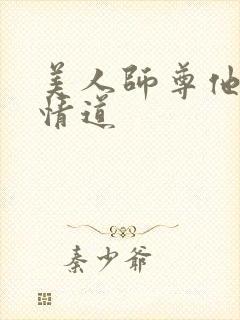 美人师尊他
情道
秦少爷